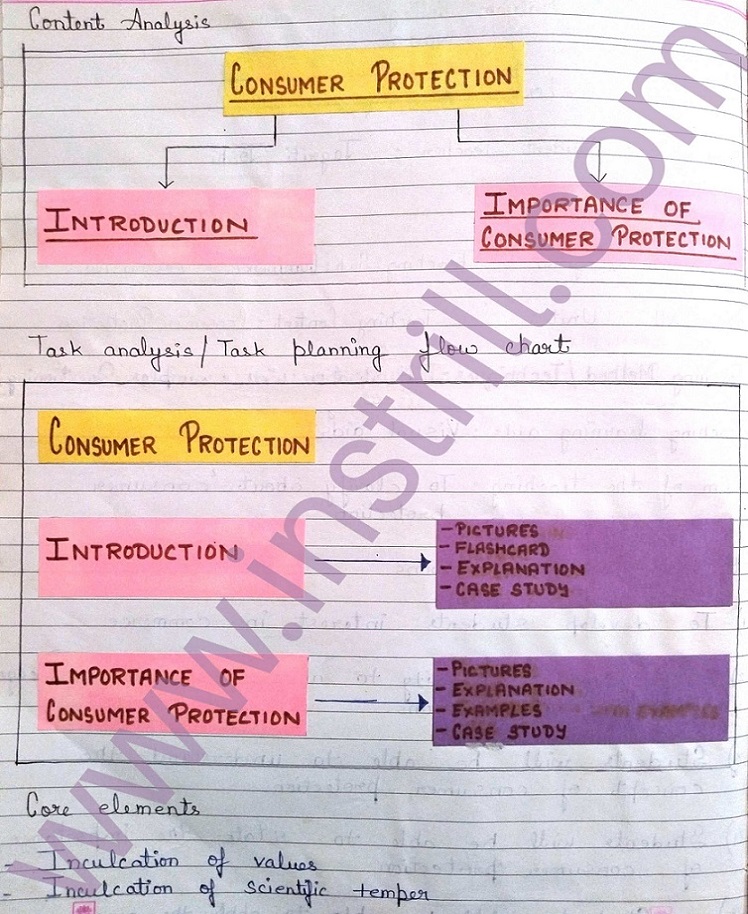 Content Analysis
CONSUMER PROTECTION
INTRODUCTION
IMPORTANCE OF
CONSUMER PROTECTION
Task analysis/Task planning flow chart
CONSUMER PROTECTION
INTRODUCTION
- PICTURES
- FLASHCARD
- EXPLANATION
- CASE STUDY
IMPORTANCE OF
CONSUMER PROTECTION
- PICTURES
- EXPLANATION
- EXAMPLES
- CASE STUDY
Core elements
- Inculcation of values
- Inculcation of scientific temper
www.instrill.com